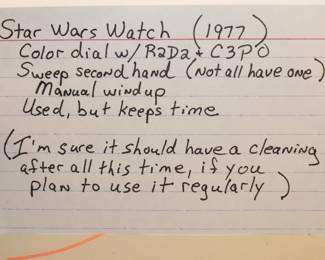 Star Wars Watch (1977)
Color dial w/ R2D2 & C3PO
Sweep second hand (Not all have one)
Manual windup
Used, but keeps time
(I'm sure it should have a cleaning
after all this time, if you
plan to use it regularly)